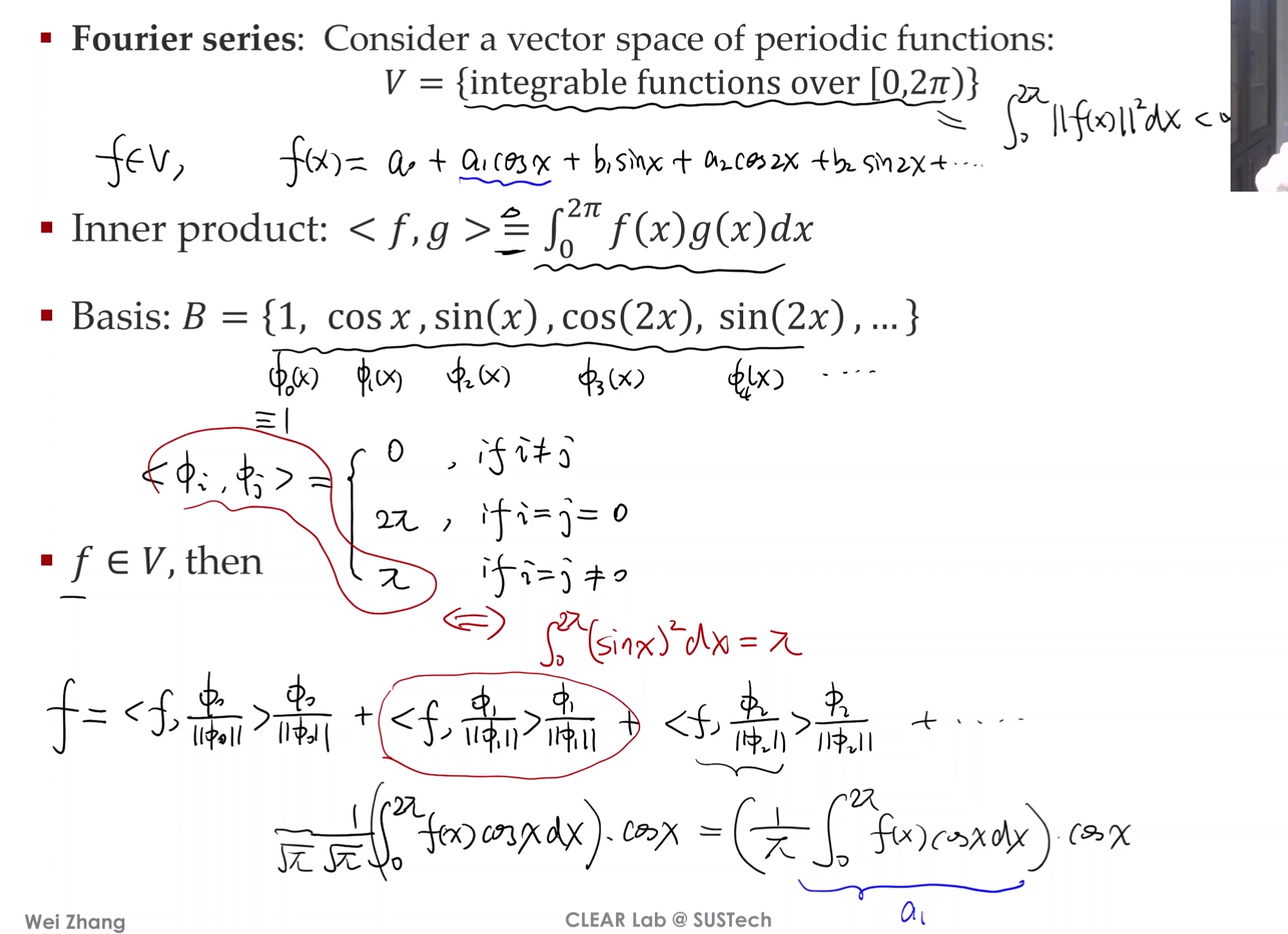 ▪ Fourier series: Consider a vector space of periodic functions:
V = {integrable functions over [0,2π)}
∫₀^2π ||f(x)||² dx <
f∈V, f(x) = a₀ + a₁cosx + b₁sinx + a₂cos2x + b₂ sin2x + ....
▪ Inner product: < f, g > ≜ ∫₀^2π f(x)g(x)dx
▪ Basis: B = {1, cos x , sin(x) , cos(2x), sin(2x) , … }
ϕ₀(x) ϕ₁(x) ϕ₂(x) ϕ₃(x) ϕ₄(x) ....
≡1
<ϕᵢ, ϕⱼ> = { 0 , if i≠j
2π , if i=j=0
π if i=j≠0
▪ f ∈ V, then
⟺ ∫₀^2π (sinx)² dx = π
f = <f, ϕ₀/||ϕ₀||> ϕ₀/||ϕ₀|| + <f, ϕ₁/||ϕ₁||> ϕ₁/||ϕ₁|| + <f, ϕ₂/||ϕ₂||> ϕ₂/||ϕ₂|| + .....
1/(√π √π) (∫₀^2π f(x) cosx dx) · cosx = (1/π ∫₀^2π f(x) cosx dx) · cosx
a₁
Wei Zhang CLEAR Lab @ SUSTech